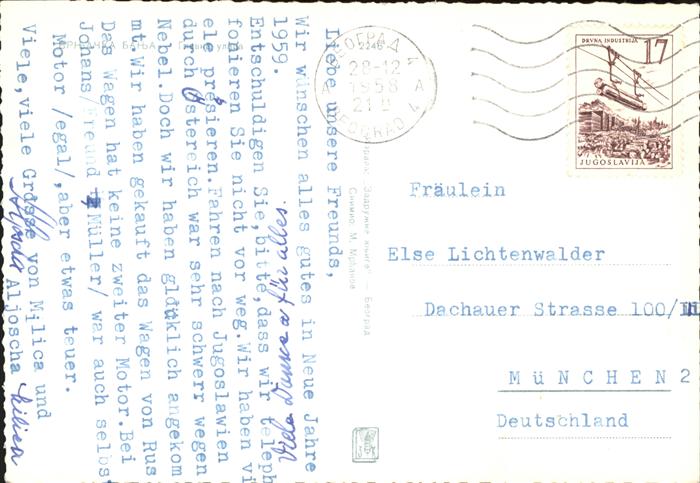 ВРЊАЧКА БАЊА
Liebe unsere Freunds,
Wir wünschen alles gutes in Neue Jahre
1959.
Entschuldigen Sie,bitte,dass wir teleph
fonieren Sie nicht vor weg.Wir haben vi
ele präsieren.Fahren nach Jugoslawien
durch Östereich war sehr schwerr wegen
Nebel.Doch wir haben glücklich angekom
mt. Wir haben gekauft das Wagen von Rus
Das Wagen hat keine zweiter Motor.Bei
Johans/Freund Müller/ war auch selbs
Motor /egal/,aber etwas teuer.
Viele,viele Grösse von Milica und
Aljoscha
Viele für alles.
Milica
Снимио М.
БЕОГРАД
28-12
1958
21
BEOGRAD 4
A
DRVNA INDUSTRIJA
17
JUGOSLAVIJA
Fräulein
Else Lichtenwalder
Dachauer Strasse 100/
MüNCHEN 2
Deutschland